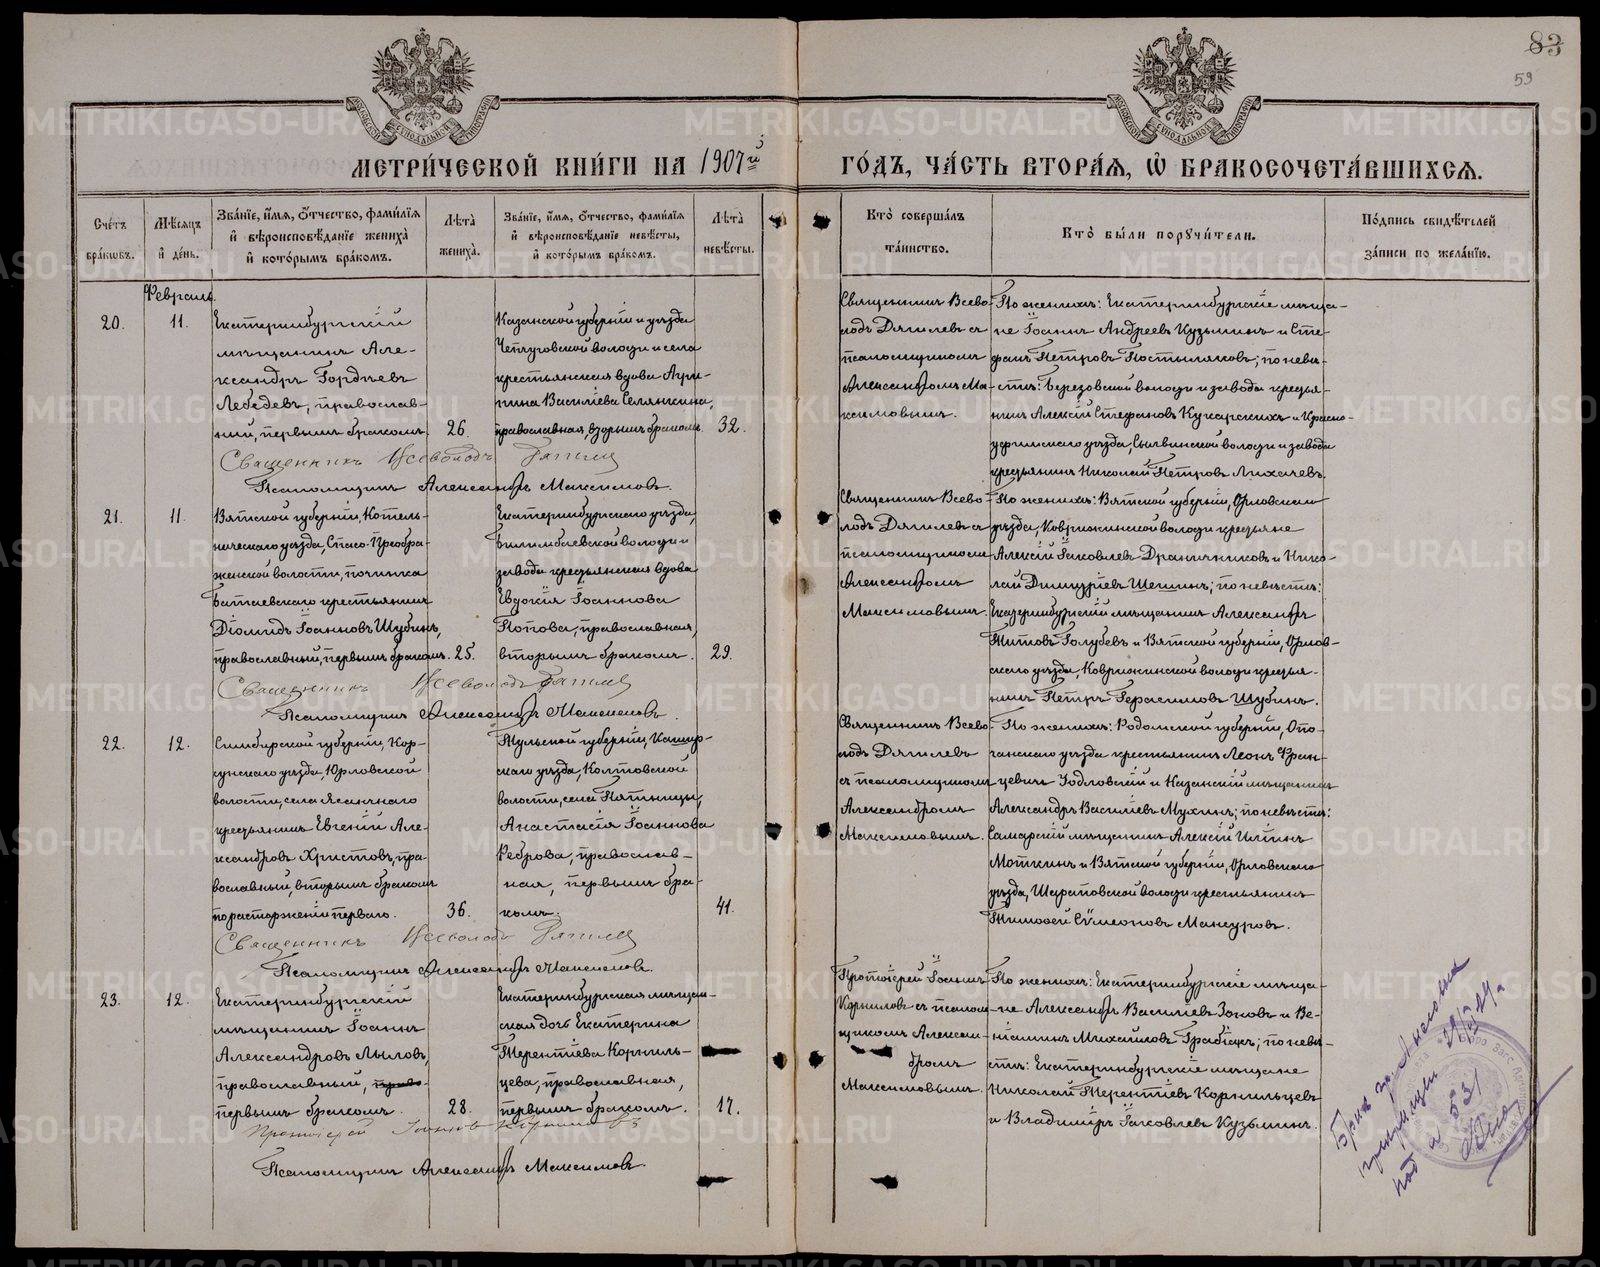 83
59
МЕТРИ́ЧЕСКОЙ КНИ́ГИ НА 1907й
ГО́ДЪ, ЧА́СТЬ ВТОРА́Я, Ѡ҆ БРАКОСОЧЕТА́ВШИХСЯ.
Сче́тъ бра́кѡвъ.
Мѣ́сяцъ и҆ де́нь.
Зва́нїе, и҆́мя, ѻ҆́тчество, фами́лїя и҆ вѣроисповѣ́данїе жениха̀ и҆ кото́рымъ бра́комъ.
Лѣ́та жениха̀.
Зва́нїе, и҆́мя, ѻ҆́тчество, фами́лїя и҆ вѣроисповѣ́данїе невѣ́сты, и҆ кото́рымъ бра́комъ.
Лѣ́та невѣ́сты.
Кто̀ соверша́лъ та́инство.
Кто̀ бы́ли порꙋчи́тели.
По́дпись свидѣ́телей за́писи по жела́нїю.
Февраль.
20.
11.
Екатеринбургскій
мѣщанинъ Але-
ксандръ Гордѣевъ
Лебедевъ, православ-
ный, первымъ бракомъ.
26.
Казанской губерніи и уѣзда
Чепчуговской волости и села
крестьянская вдова Агри-
пина Василіева Селянкина,
православная, вторымъ бракомъ.
32.
Священникъ Всево-
лодъ Дягилевъ съ
псаломщикомъ
Александромъ Ма-
ксимовымъ.
По женихѣ: Екатеринбургскіе мѣща-
не Іоаннъ Андреевъ Кузьминъ и Сте-
фанъ Петровъ Постыляковъ; по невѣ-
стѣ: Березовской волости и завода крестья-
нинъ Алексій Стефановъ Кукарскихъ и Красно-
уфимскаго уѣзда, Сылвинской волости и завода
крестьянинъ Николай Петровъ Лихачевъ.
Священникъ Всеволодъ Дягилев
Псаломщикъ Александръ Максимовъ.
21.
11.
Вятской губерніи, Котель-
ническаго уѣзда, Спасо-Преобра-
женской волости, починка
Батаевскаго крестьянинъ
Діомидъ Іоанновъ Шубинъ,
православный, первымъ бракомъ.
25.
Екатеринбургскаго уѣзда,
Билимбаевской волости и
завода крестьянская вдова
Евдокія Іоаннова
Попова, православная,
вторымъ бракомъ.
29.
Священникъ Всево-
лодъ Дягилевъ съ
псаломщикомъ
Александромъ
Максимовымъ.
По женихѣ: Вятской губерніи, Орловскаго
уѣзда, Ковржинской волости крестьяне
Алексій Іаковлевъ Драничниковъ и Нико-
лай Димитріевъ Шешинъ; по невѣстѣ:
Екатеринбургскій мѣщанинъ Александръ
Титовъ Голубевъ и Вятской губерніи, Орлов-
скаго уѣзда, Ковржинской волости крестья-
нинъ Петръ Герасимовъ Шубинъ.
Священникъ Всеволодъ Дягилев
Псаломщикъ Александръ Максимовъ.
22.
12.
Симбирской губерніи, Кор-
сунскаго уѣзда, Юрловской
волости, села Ясачнаго
крестьянинъ Евгеній Але-
ксандровъ Христовъ, пра-
вославный, вторымъ бракомъ
по расторженіи перваго.
36.
Тульской губерніи, Кашир-
скаго уѣзда, Колтовской
волости, села Пятницы,
Анастасія Іоаннова
Реброва, православ-
ная, первымъ бра-
комъ.
41.
Священникъ Всево-
лодъ Дягилевъ
съ псаломщикомъ
Александромъ
Максимовымъ.
По женихѣ: Радомской губерніи, Опо-
чанскаго уѣзда крестьянинъ Леонъ Фран-
цевичъ Годловскій и Казанскій мѣщанинъ
Александръ Василіевъ Мухинъ; по невѣстѣ:
Самарскій мѣщанинъ Алексій Иліинъ
Моткинъ и Вятской губерніи, Орловскаго
уѣзда, Шараповской волости крестьянинъ
Тимоѳей Сѵмеоновъ Манкуровъ.
Священникъ Всеволодъ Дягилев
Псаломщикъ Александръ Максимовъ.
23.
12.
Екатеринбургскій
мѣщанинъ Іоаннъ
Александровъ Лыловъ,
православный,
первымъ бракомъ.
28.
Екатеринбургская мѣщан-
ская дочь Екатерина
Терентіева Корниль-
цева, православная,
первымъ бракомъ.
17.
Протоіерей Іоаннъ
Корниловъ съ псалом-
щикомъ Алексан-
дромъ
Максимовымъ.
По женихѣ: Екатеринбургскіе мѣща-
не Александръ Василіевъ Зоновъ и Ве-
ніаминъ Михаиловъ Грабіжъ; по невѣ-
стѣ: Екатеринбургскіе мѣщане
Николай Терентіевъ Корнильцевъ
и Владиміръ Іаковлевъ Кузьминъ.
Протоіерей Іоаннъ Корниловъ
Псаломщикъ Александръ Максимовъ.
Брак
531
METRIKI.GASO-URAL.RU